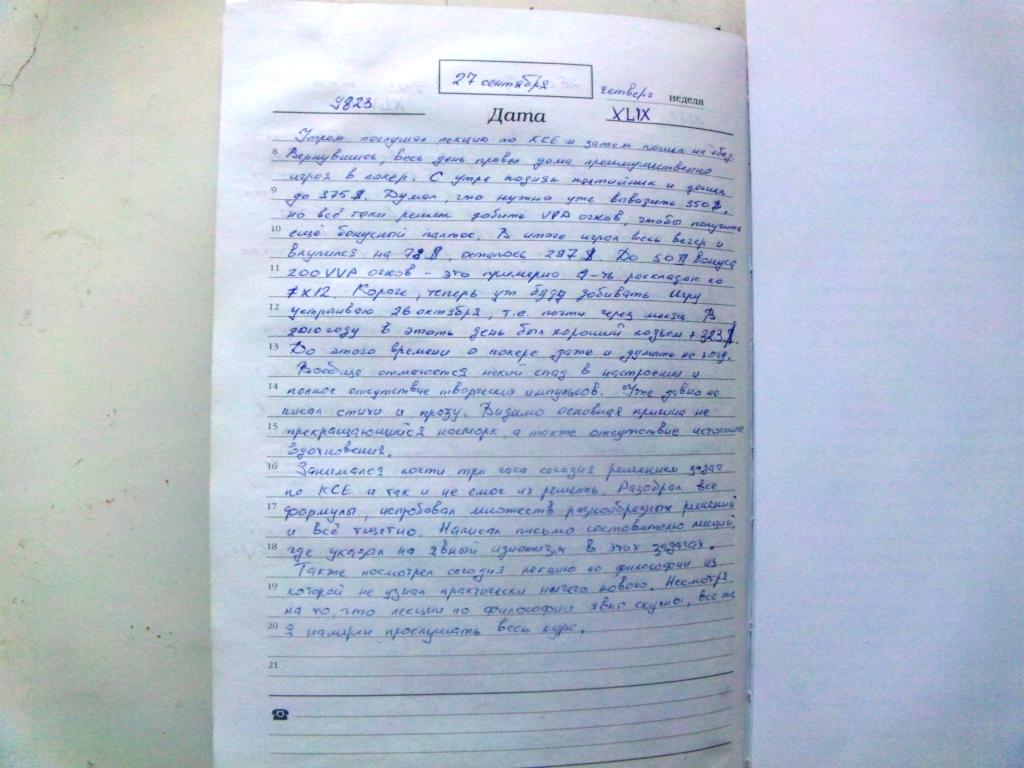 27 сентября
четверг неделя
9823 Дата XLIX
Утром послушал лекцию по КСЕ и затем пошел на обед.
8 Вернувшись, весь день провел дома преимущественно
играя в покер. С утра поднял и дошел
9 до 375$. Думал, что нужно уже выводить 350$,
но всё таки решил добить VVP очков, чтобы получить
10 ещё бонусный. В итоге играл весь вечер и
на 78$, осталось 297$. До 50$ бонуса
11 200 VVP очков - это примерно раскладок по
7x12. Короче, теперь уж буду добивать. Игру
12 устраиваю 26 октября, т.е. почти через месяц. В
2010 году в этоть день был хороший подъем + 323$.
13 До этого времени о покере даже и думать не хочу.
Вообще отмечается некий спад в настроении и
14 полное отсутствие творческих импульсов. Уже давно не
писал стихи и прозу. Видимо основная причина не
15 прекращающийся насморк, а также отсутствие источника
вдохновения.
16 Занимался почти три часа сегодня решением задач
по КСЕ и так и не смог их решить. Разобрал все
17 формулы, испробовал множеств разнообразных решений
и всё тщетно. Написал письмо составителю лекций,
18 где указал на явный идиотизм в этих задачах.
Также посмотрел сегодня лекцию по философии из
19 которой не узнал практически ничего нового. Несмотря
на то, что лекции по философии явно скучны, все же
20 я намерен прослушать весь курс.
21